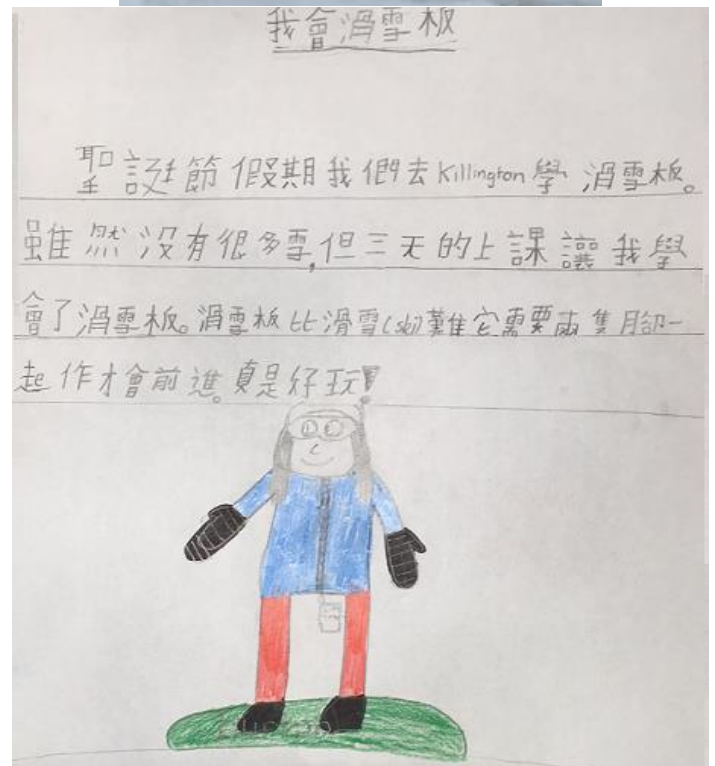 我會滑雪板
聖誕節假期我們去Killington學滑雪板。
雖然没有很多雪,但三天的上課讓我學
會了滑雪板。滑雪板比滑雪(ski)難它需要兩隻腳一
起作才會前進。真是好玩!